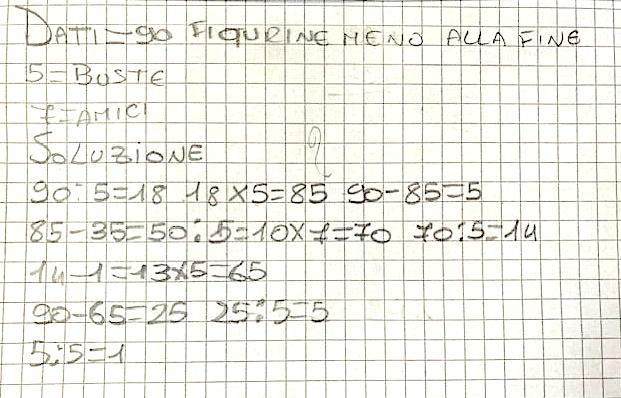 DATI=90 FIGURINE MENO ALLA FINE
5=BUSTE
7=AMICI
SOLUZIONE ?
90:5=18 18X5=85 90-85=5
85-35=50:5=10X7=70 70:5=14
14-1=13X5=65
90-65=25 25:5=5
5:5=1